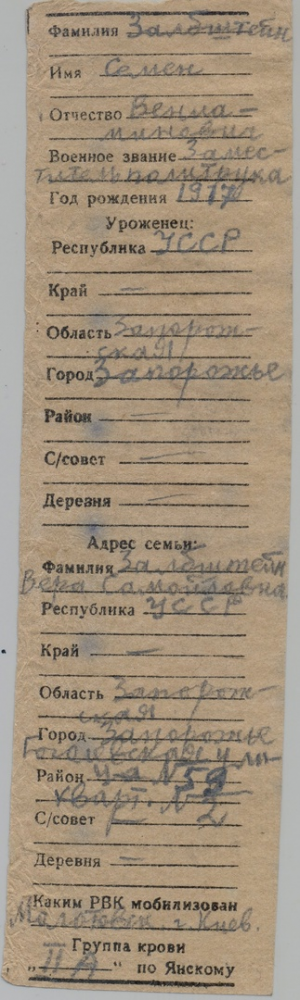 Фамилия Залбштейн
Имя Семен
Отчество Вениа-
миновна
Военное звание Замес-
титель политрука
Год рождения 1917
Уроженец:
Республика УССР
Край —
Область Запорож-
ская
Город Запорожье
Район —
С/совет —
Деревня —
Адрес семьи:
Фамилия Залбштейн
Вера Самойловна
Республика УССР
Край —
Область Запорож-
ская
Город Запорожье
Гоголевская ули-
Район ца № 59
кварт. № 2
С/совет
Деревня —
Каким РВК мобилизован
Молотовск. г. Киев.
Группа крови
„ II А " по Янскому